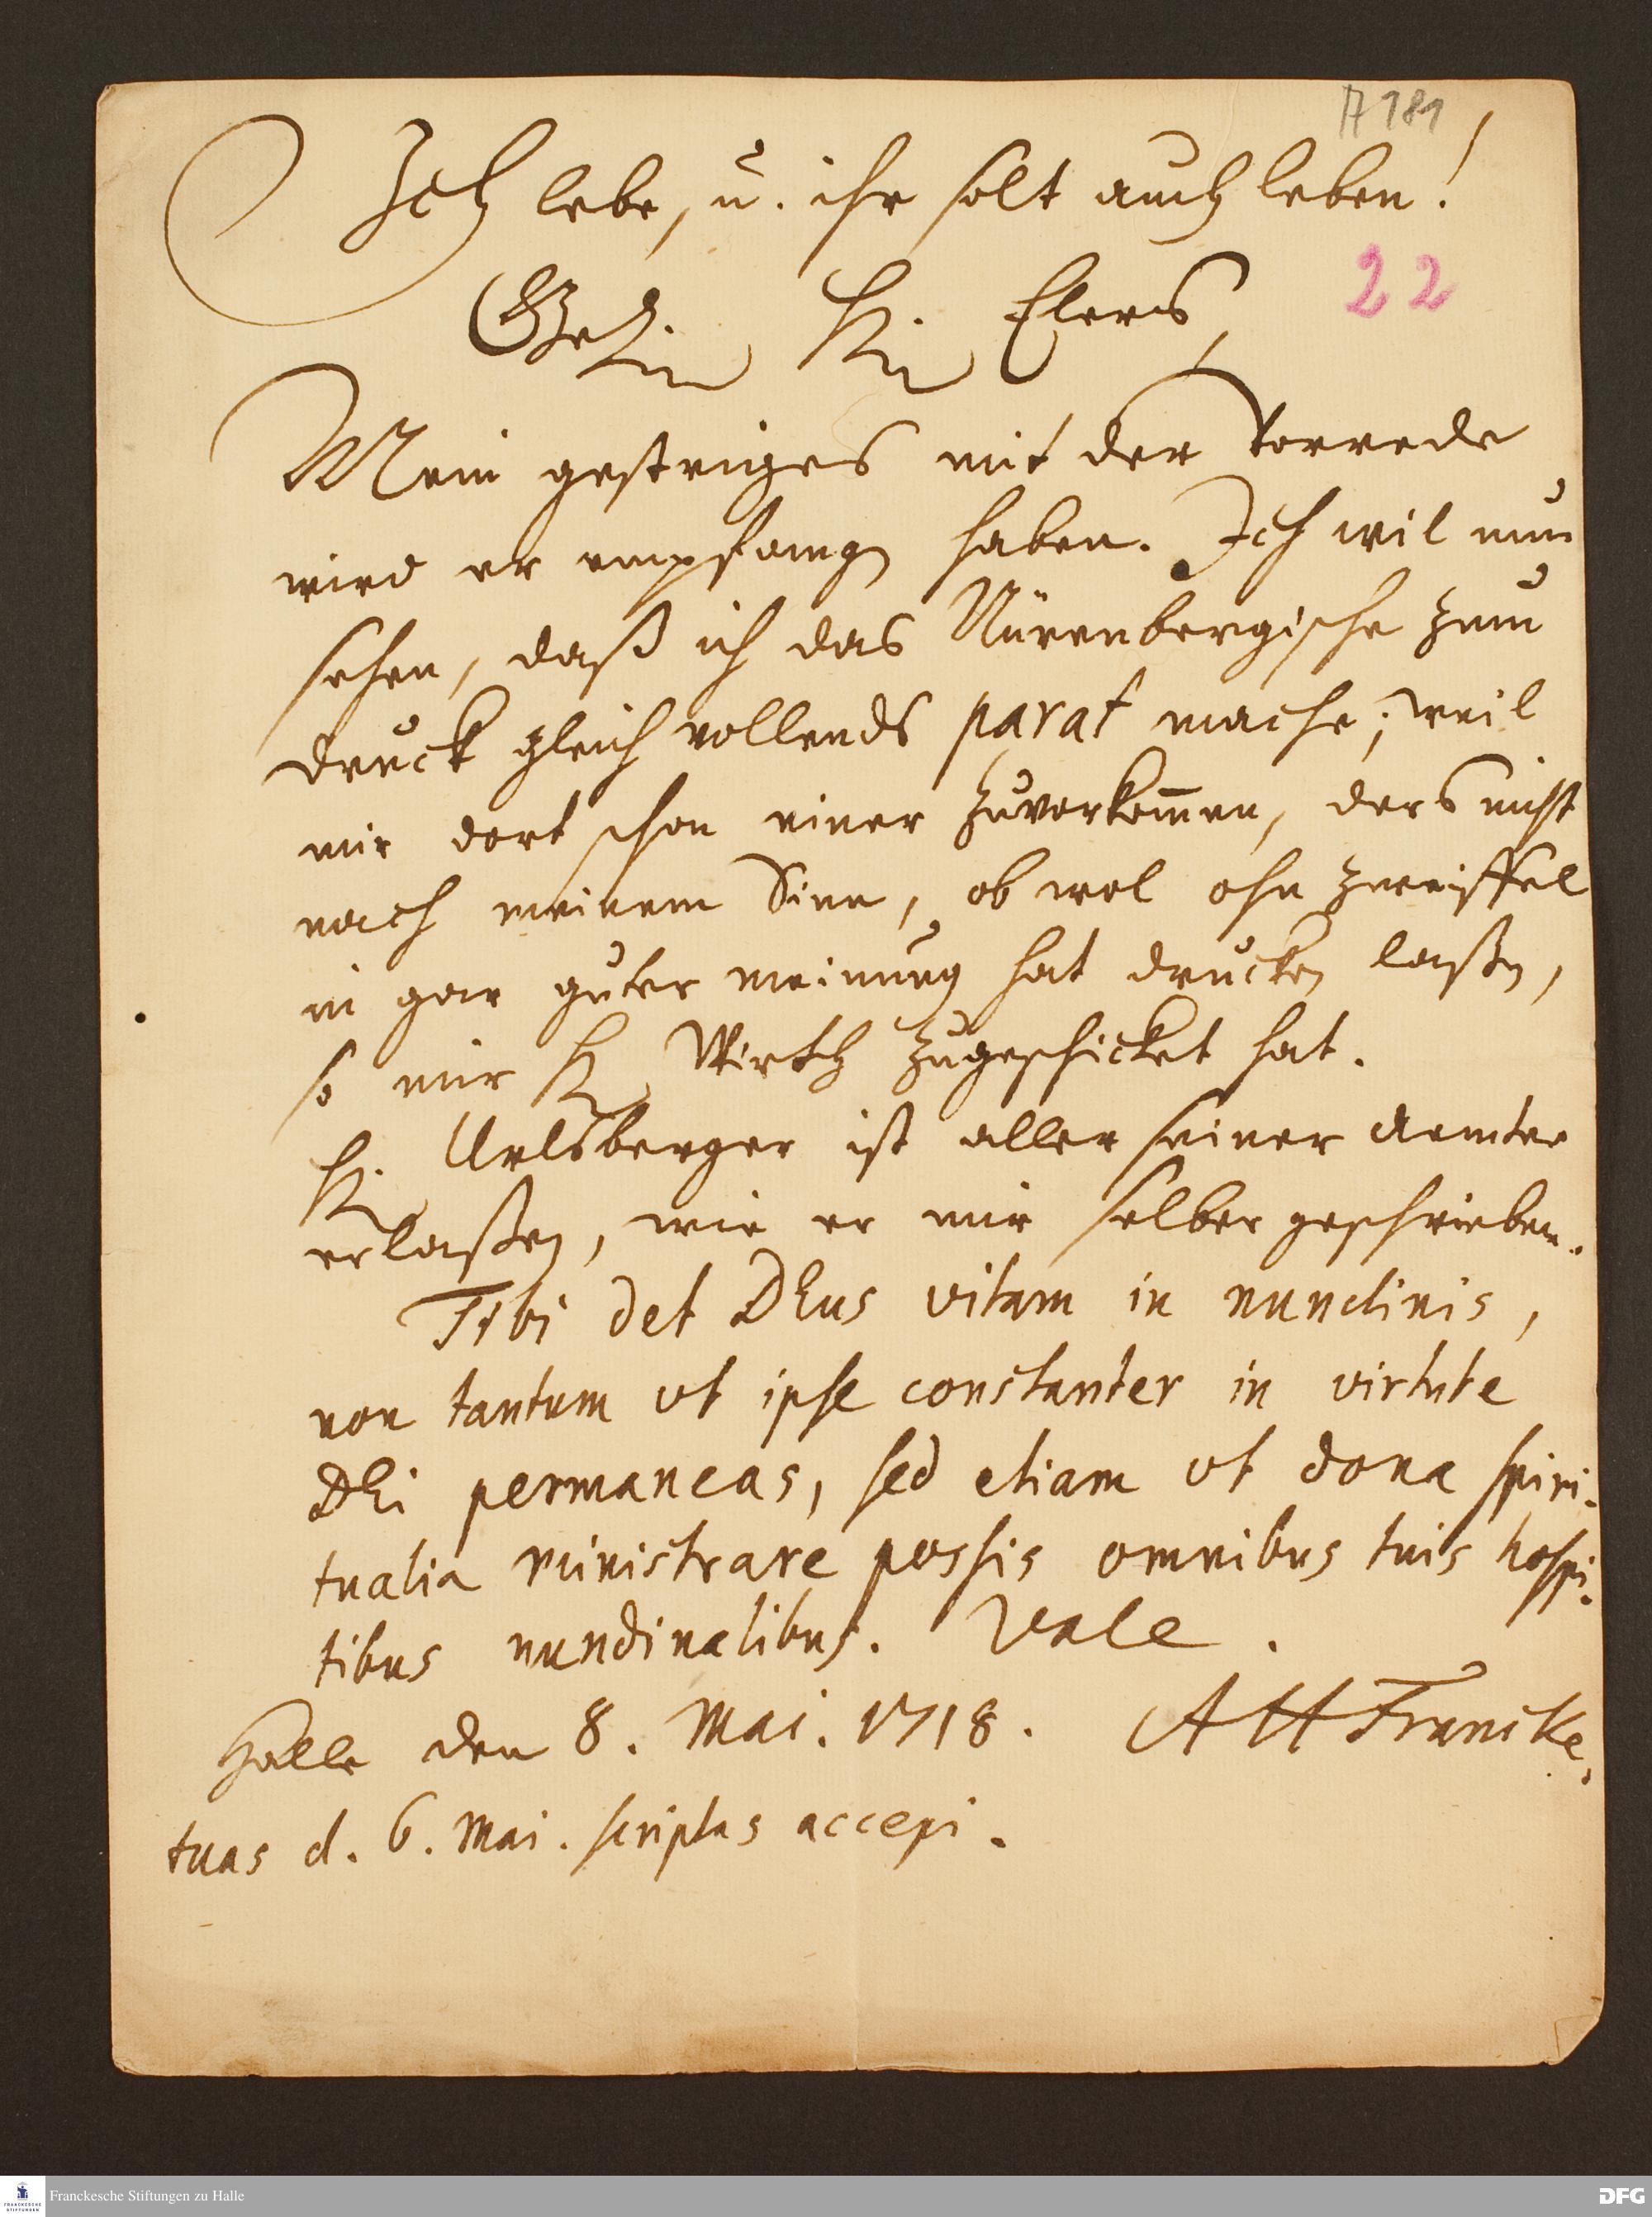 A 181
Ich lebe, u. ihr solt auch leben!
22
H. Elers,
Mein gestriges mit der Vorrede
wird er empfangen haben. Ich wil nun
sehen, daß ich das Nürenbergische zum
druck gleich vollends parat mache; weil
mir dort schon einer zuvorkom̅en, ders nicht
nach meinem Sinn, ob wol ohn zweiffel
in gar guter meinung hat drucken laßen,
so mir H. Wirth zugeschicket hat.
H. Urlsberger ist aller seiner aemter
erlaßen, wie er mir selber geschrieben.
Tibi det DEus vitam in nundinis,
non tantum vt ipse constanter in virtute
DEi permaneas, sed etiam vt dona spiri-
tualia ministrare possis omnibus tuis hospi-
tibus nundinalibus. Vale.
Halle den 8. Mai. 1718. AHFrancke.
tuas d. 6. Mai. scriptas accepi.
Franckesche Stiftungen zu Halle
DFG